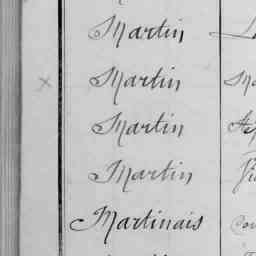 Martin
Martin
Martin
Martin
Martinais